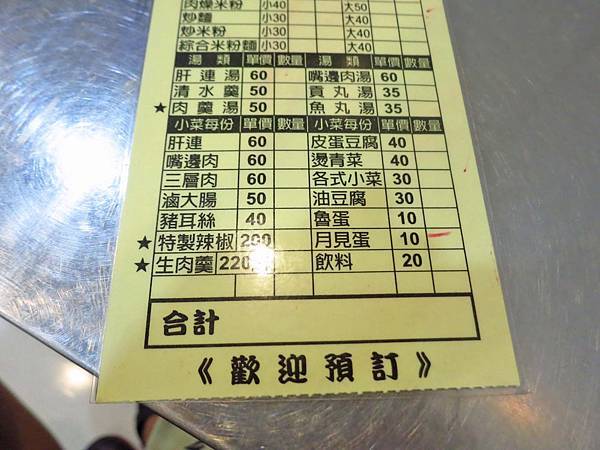 肉燥米粉 小40 大50
炒麵 小30 大40
炒米粉 小30 大40
綜合米粉麵 小30 大40
湯類 單價 數量 湯類 單價 數量
肝連湯 60 嘴邊肉湯 60
清水羹 50 貢丸湯 35
★肉羹湯 50 魚丸湯 35
小菜每份 單價 數量 小菜每份 單價 數量
肝連 60 皮蛋豆腐 40
嘴邊肉 60 燙青菜 40
三層肉 60 各式小菜 30
滷大腸 50 油豆腐 30
豬耳絲 40 魯蛋 10
★特製辣椒 200 月見蛋 10
★生肉羹 220 飲料 20
合計
《歡迎預訂》